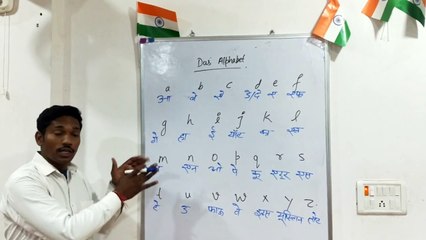 Das Alphabet
a b c d e f
आ बे से डे ए एफ
g h i j k l
गे हा ई योट का एल
m n o p q r s
एन ओ पे कू एर एस
t u v w x y z
टे उ फाऊ वे इक्स